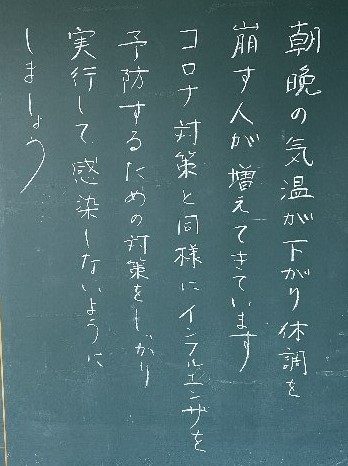 朝晩の気温が下がり体調を
崩す人が増えてきています
コロナ対策と同様にインフルエンザを
予防するための対策をしっかり
実行して感染しないように
しましょう